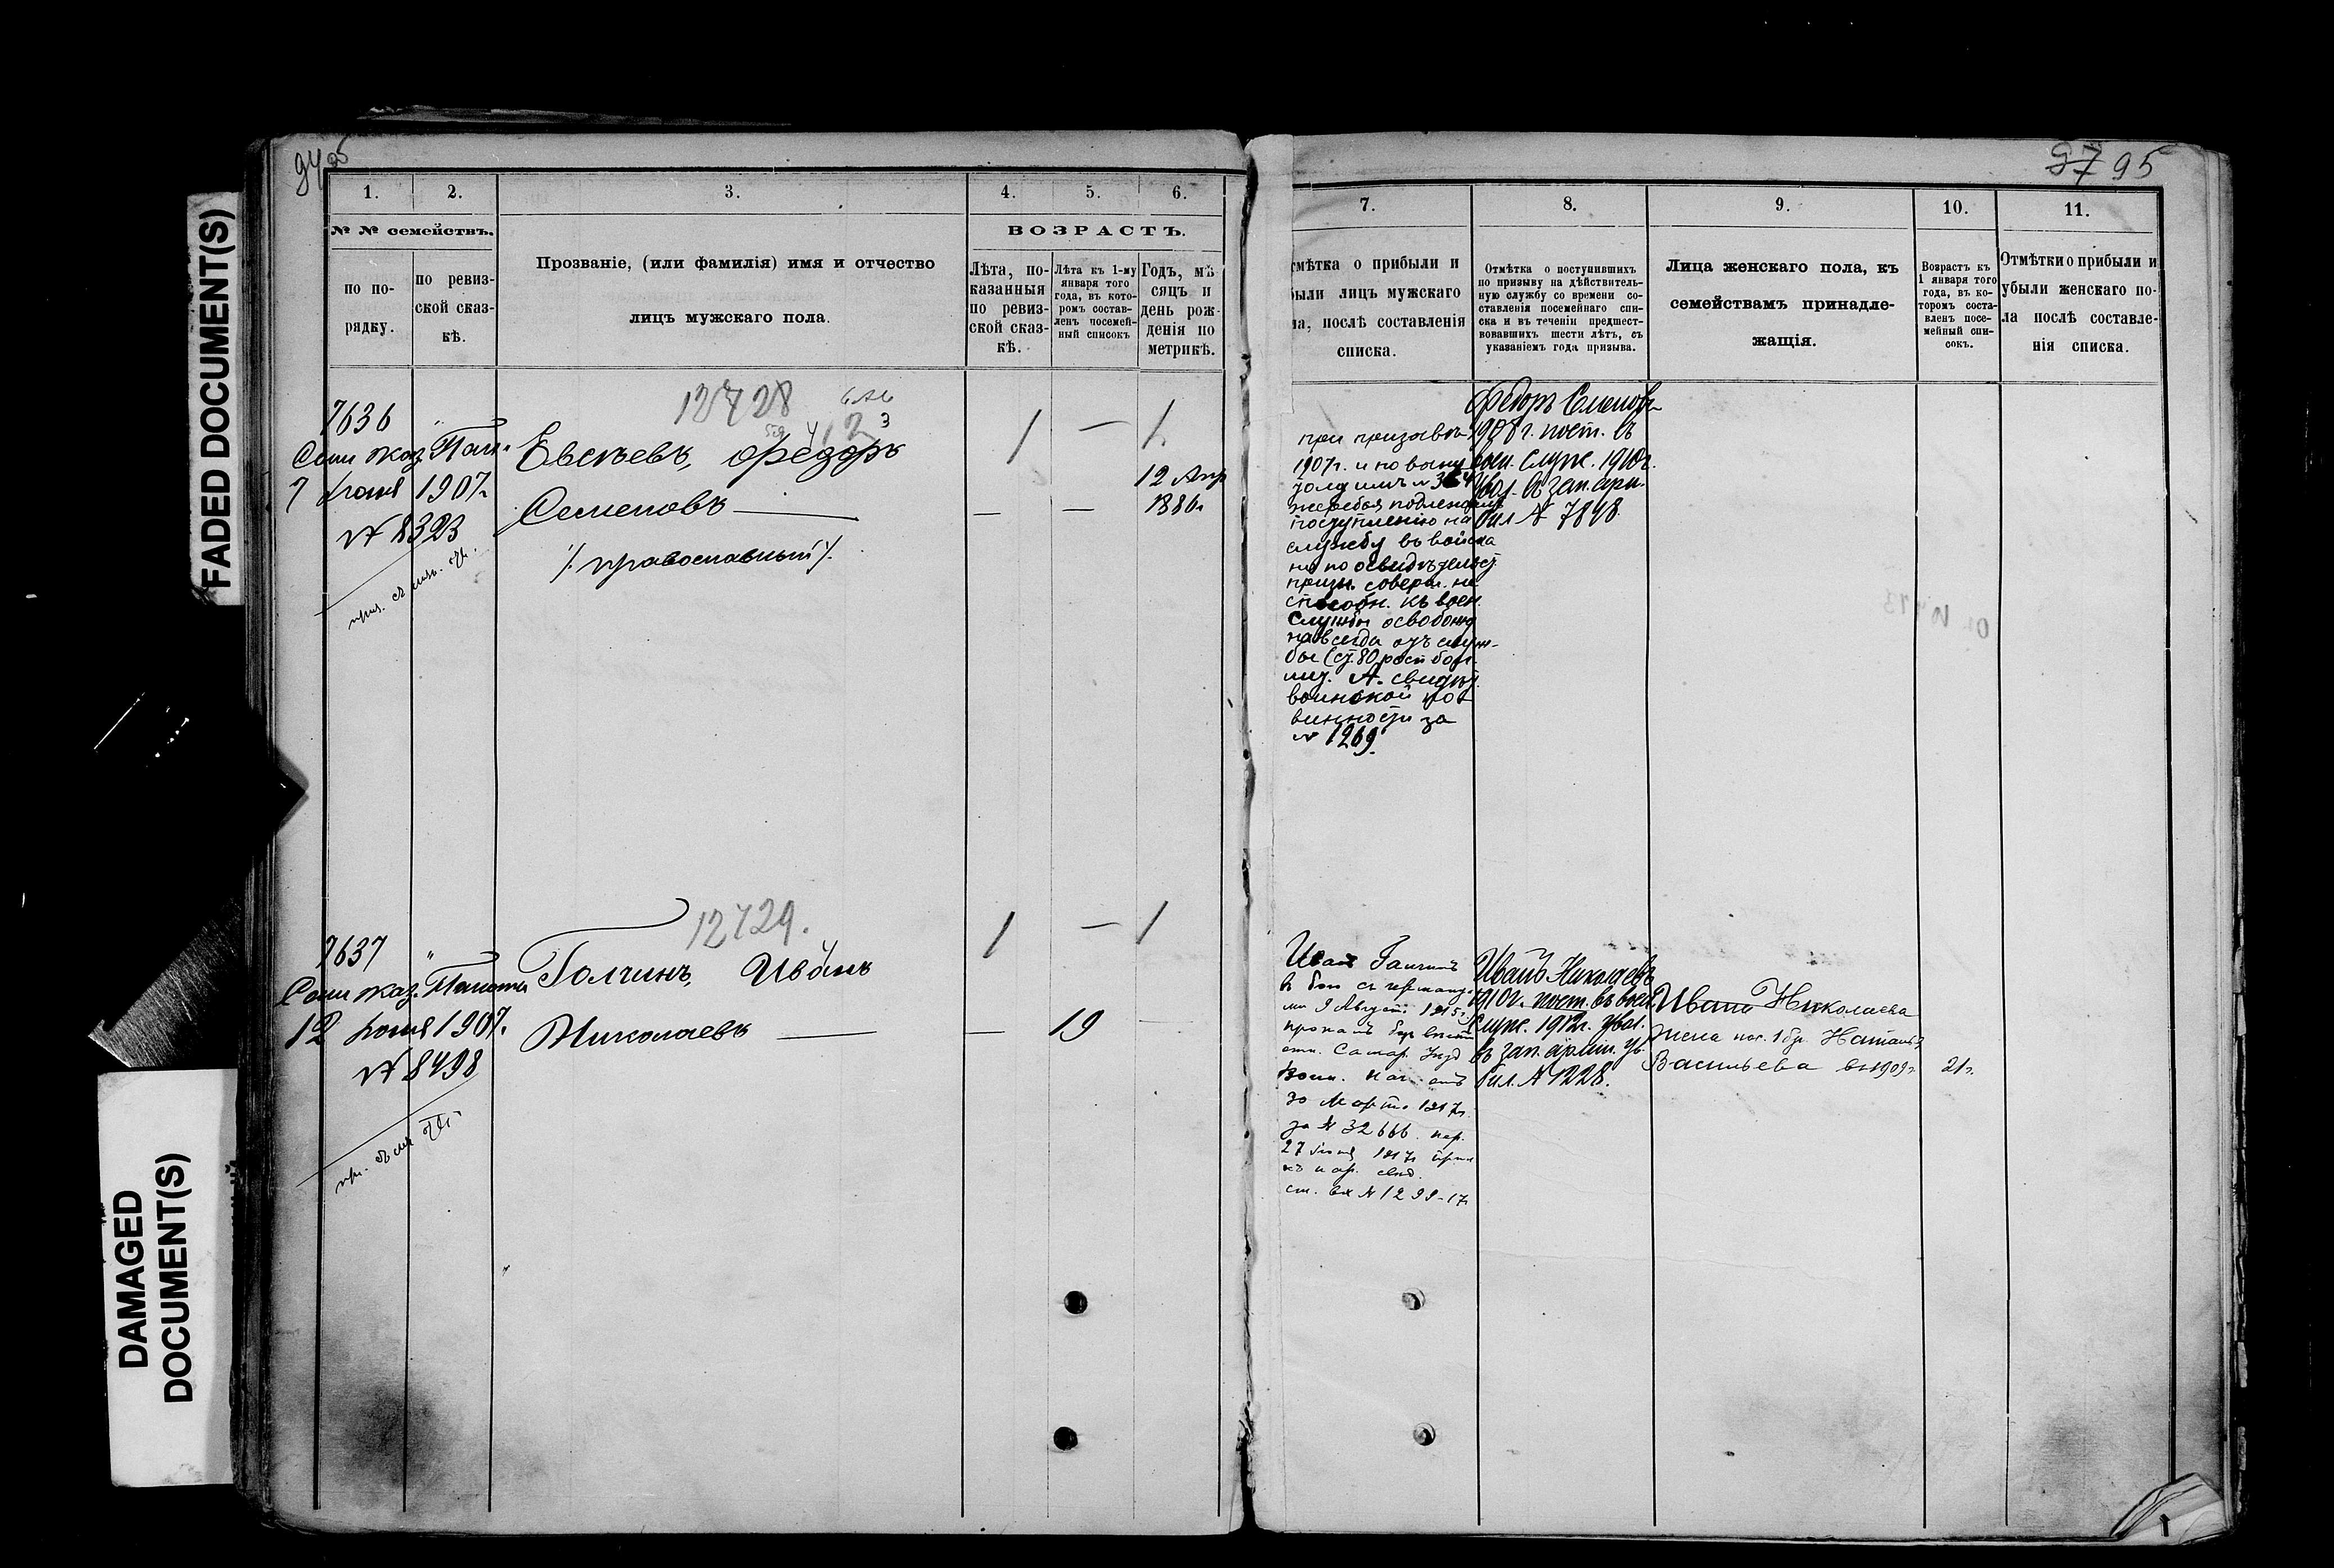 FADED DOCUMENT(S)
DAMAGED
DOCUMENT(S)
94
1. 2. 3. 4. 5. 6.
№ № семействъ.
по по-
рядку.
по ревиз-
ской сказ-
кѣ.
Прозваніе, (или фамилія) имя и отчество
лицъ мужскаго пола.
ВОЗРАСТЪ.
Лѣта, по-
казанныя
по ревиз-
ской сказ-
кѣ.
Лѣта къ 1-му
января того
года, въ кото-
ромъ состав-
ленъ посемей-
ный списокъ
Годъ, мѣ-
сяцъ и
день рож-
денія по
метрикѣ.
12728
7636
Евсѣевъ, Федоръ
Семеновъ
/. православный /.
7 Іюня 1907г.
№ 8323
1 — 1
12 Апр
1886г
12729.
7637
Голчинъ, Иванъ
Николаевъ
12 Іюня 1907г.
№ 8498
1 — 1
— 19
97 95
7. 8. 9. 10. 11.
тмѣтка о прибыли и
были лицъ мужскаго
ла, послѣ составленія
списка.
Отмѣтка о поступившихъ
по призыву на дѣйствитель-
ную службу со времени со-
ставленія посемейнаго спи-
ска и въ теченіи предшест-
вовавшихъ шести лѣтъ, съ
указаніемъ года призыва.
Лица женскаго пола, къ
семействамъ принадле-
жащія.
Возрастъ къ
1 января того
года, въ ко-
торомъ соста-
вленъ посе-
мейный спи-
сокъ.
Отмѣтки о прибыли и
убыли женскаго по-
ла послѣ составле-
нія списка.
при призывѣ
1907г. и по вынут
жребья подлежалъ
поступленію на
службу въ войска
но по освидѣтельст
призн. соверш. не
способн. къ воен.
службѣ освобожд
навсегда отъ служ-
бы (ст. 80 росп бол.
лит. А. свидѣт.
воинской по-
винности за
№ 1269.
Федоръ Семеновъ
1908г. пост. въ
воен. служ. 1910г.
увол. въ зап. арм.
бил № 7848
Иванъ Голчинъ
въ бою съ германца-
ми 9 Август. 1915г.
пропалъ безъ вѣсти
отн. Самар. Уѣзд
Воин. Нач. отъ
30 Марта 1917г.
за № 32666
27 Іюня 1917г
ст. вх № 1299-17г
Иванъ Николаевъ
1910г. пост. въ воен.
служ. 1912г. увол.
въ зап. арміи. ув.
бил. № 1228.
Ивана Николаева
жена 1 бр. Наталья
Васильева въ 1909г 21г.